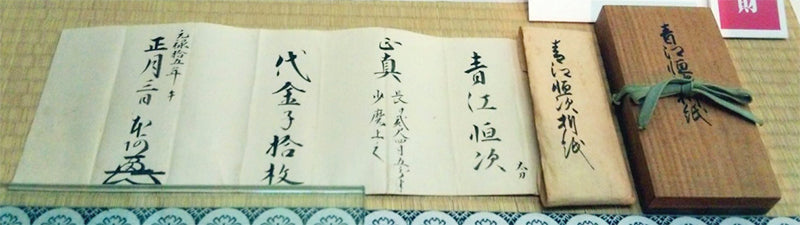 青江恒次
太刀
正真
長サ貳尺四寸五分半
少磨上之
代金子拾枚
元禄拾五年
午
正月三日
本阿
青江恒次折紙
青江恒次折紙
財